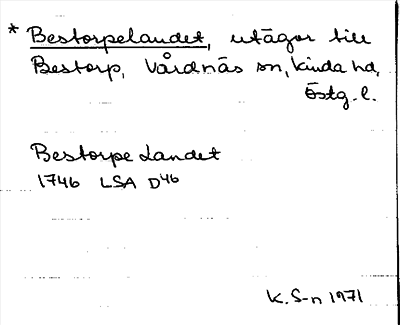 * Bestorpelandet, utägor till
Bestorp, Vårdnäs sn, Kinda hd,
Östg. l.
Bestorpe Landet
1746 LSA D46
K. S-n 1971